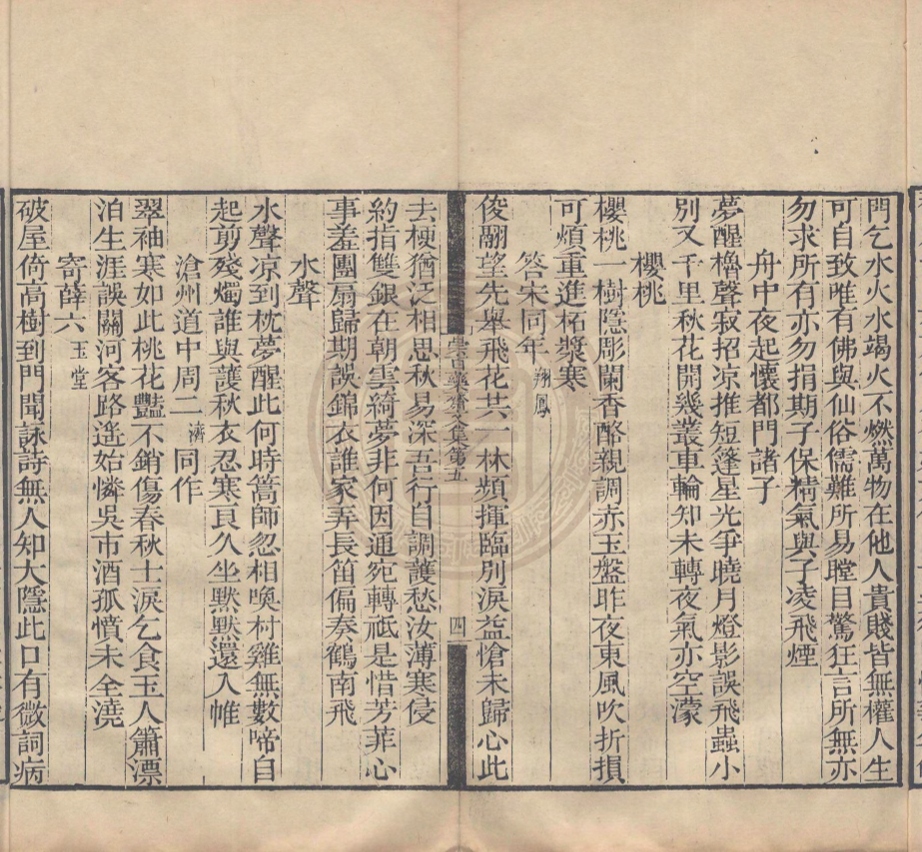 門乞水火水竭火不燃萬物在他人貴賤皆無權人生
可自致唯有佛與仙俗儒難所易瞠目驚狂言所無亦
勿求所有亦勿捐期子保精氣與子凌飛煙
舟中夜起懷都門諸子
夢醒櫓聲寂招凉推短篷星光爭曉月燈影誤飛蟲小
別又千里秋花開幾叢車輪知未轉夜氣亦空濛
櫻桃
櫻桃一樹隱彫闌香酪親調赤玉盤昨夜東風吹折損
可煩重進柘漿寒
答宋同年翔鳳
俊翮望先舉飛花共一林頻揮臨別淚益愴未歸心此
齋文集第五
四
去梗猶泛相思秋易深吾行自調護愁汝薄寒侵
約指雙銀在朝雲綺夢非何因通宛轉祗是惜芳菲心
事羞團扇歸期誤錦衣誰家弄長笛偏奏鶴南飛
水聲
水聲凉到枕夢醒此何時篙師忽相喚村雞無數啼自
起剪殘燭誰與護秋衣忍寒良久坐默默還入帷
滄州道中周二濟同作
翠袖寒如此桃花豔不銷傷春秋士淚乞食玉人簫漂
泊生涯誤關河客路遙始憐吳市酒孤憤未全澆
寄薛六玉堂
破屋倚高樹到門聞詠詩無人知大隱此口有微詞病